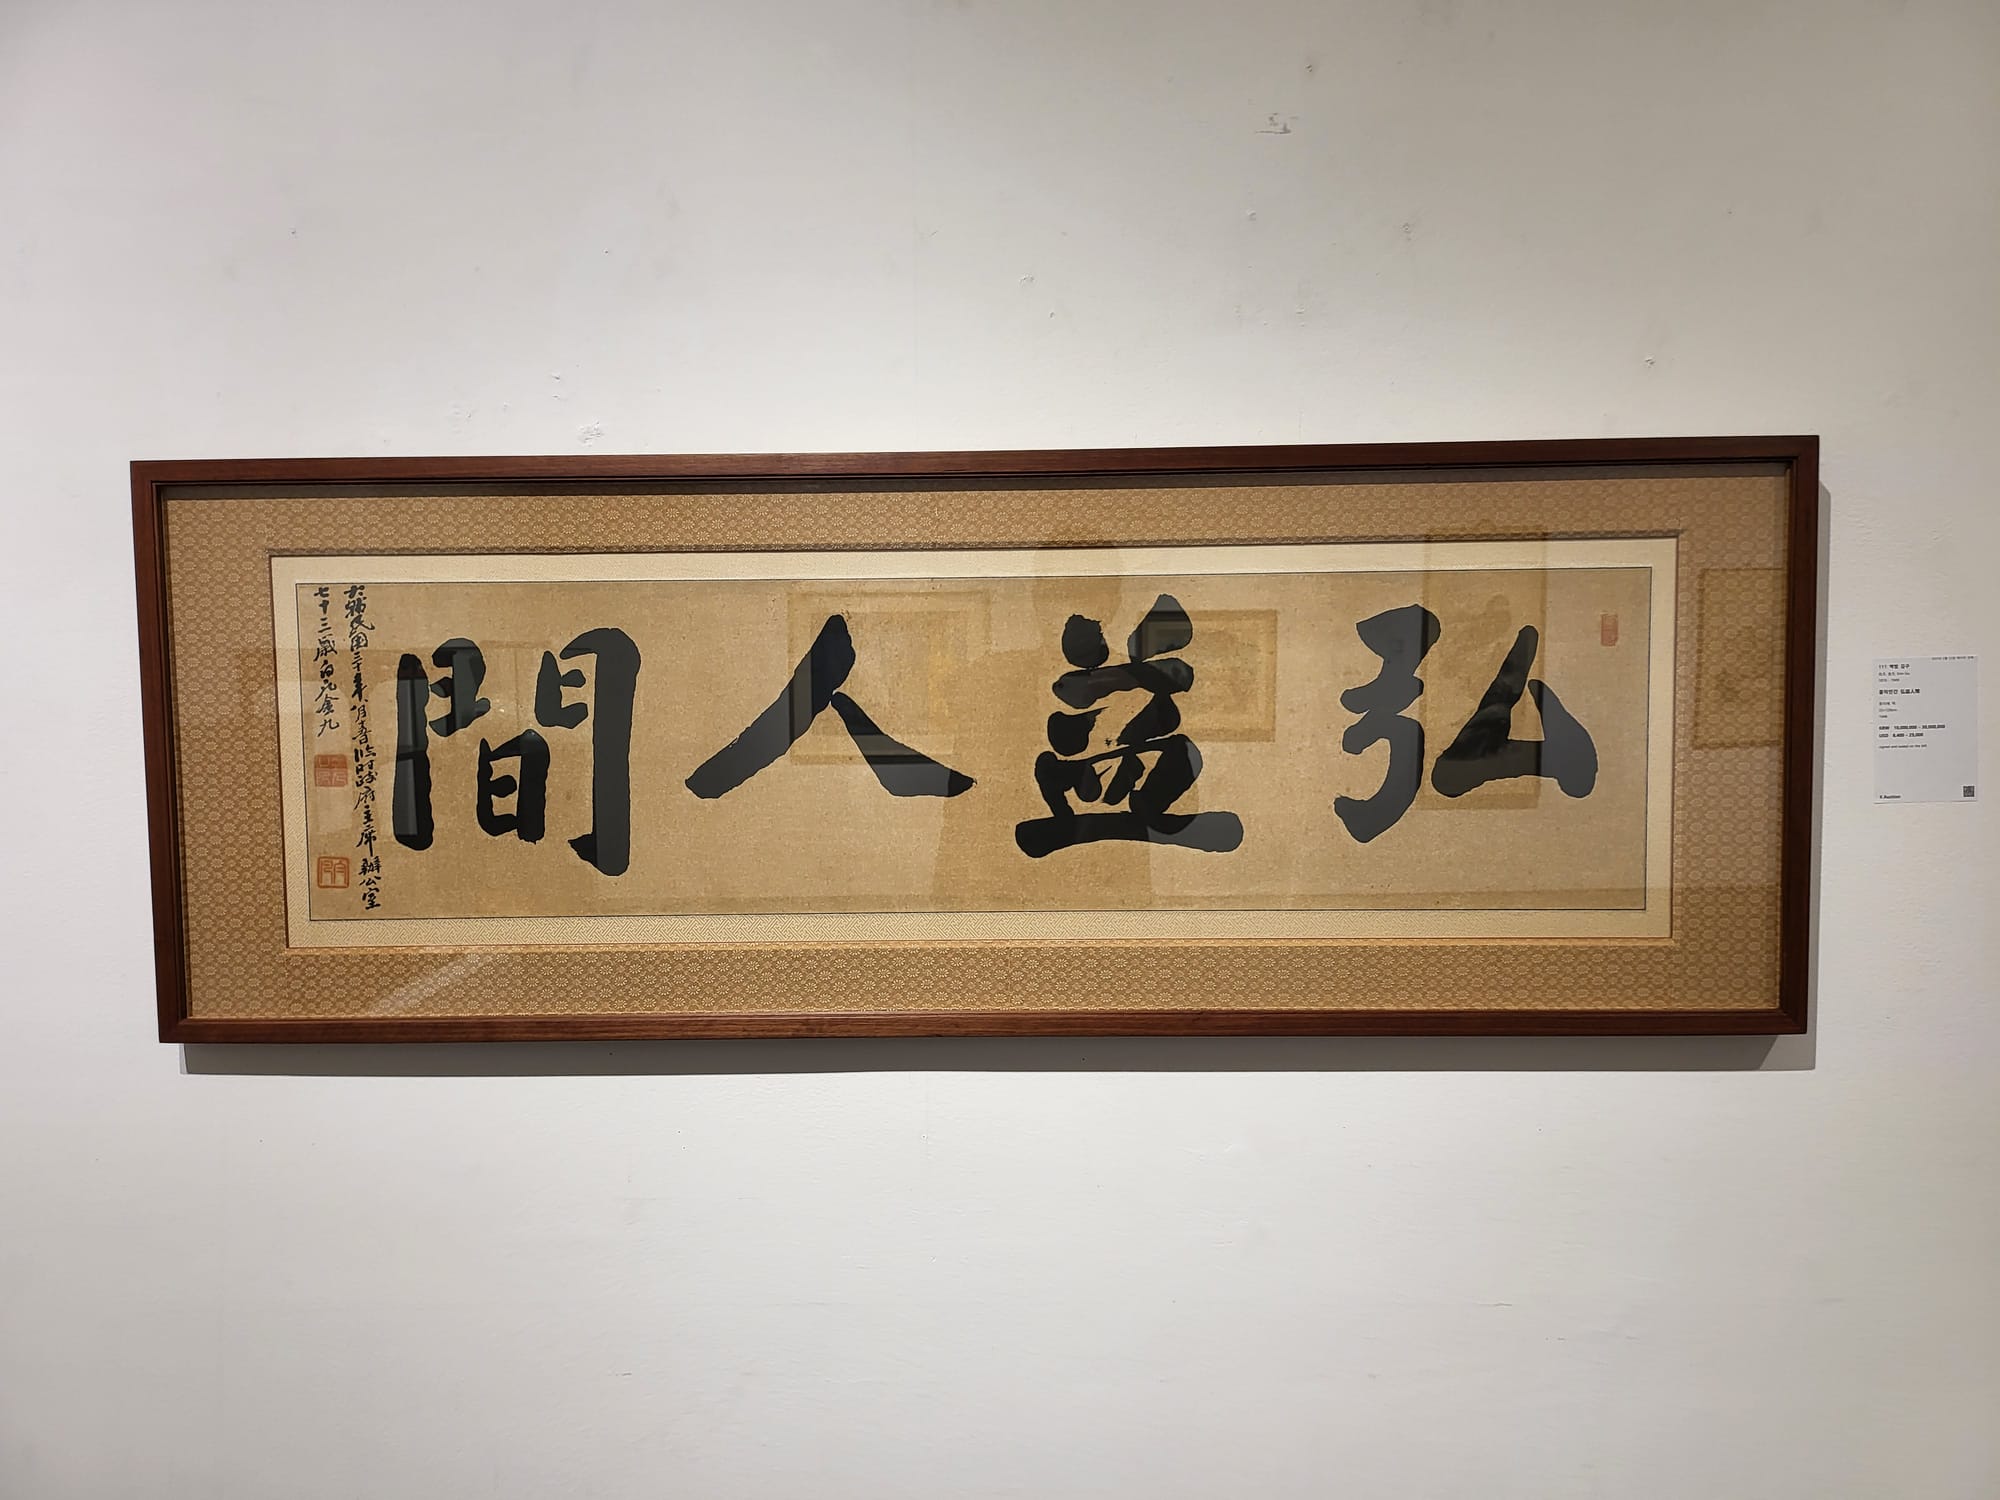 弘益人間
大韓民國三十年八月書於臨時政府主席辦公室
七十三歲白凡金九
111 백범 김구
홍익인간 弘益人間
종이에 먹
1948
KRW 10,000,000 - 30,000,000
USD 8,400 - 25,000
signed and sealed on the left
K Auction